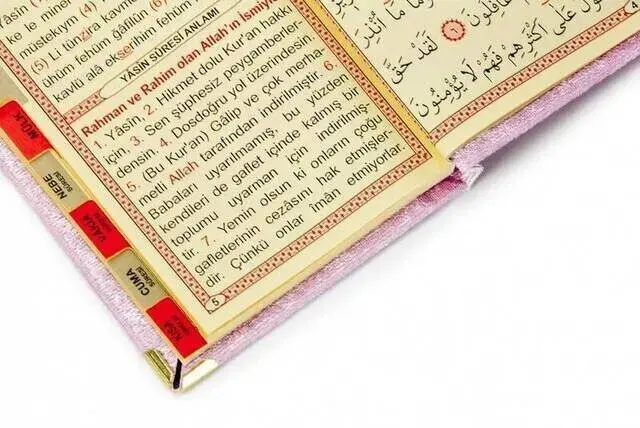 müstekıym (4)
(5) Li tünzira kavmen
ühüm fehüm ğâfilûn (6)
kavlü alâ ekserihim fehüm
YÂSİN SÛRESİ ANLAMI
Rahman ve Rahim olan Allah'ın İsmiyle
1. Yâsîn, 2. Hikmet dolu Kur'an hakkı
için, 3. Sen şüphesiz peygamberler
densin. 4. Dosdoğru yol üzerindesin.
5. (Bu Kur'an) Gâlip ve çok merha-
metli Allah tarafından indirilmiştir. 6.
Babaları uyarılmamış, bu yüzden
kendileri de gaflet içinde kalmış bir
toplumu uyarman için indirilmiş-
tir. 7. Yemin olsun ki onların çoğu
gafletlerinin cezasını hak etmişler-
dir. Çünkü onlar îmân etmiyorlar.
5
غَافِلُونَ ﴿٦﴾ لَقَدْ حَقَّ
عَلَى أَكْثَرِهِمْ فَهُمْ لَا يُؤْمِنُونَ
MÜLK
NEBE
SÛRESİ
VAKIA
CUMA
SÛRESİ
KISA